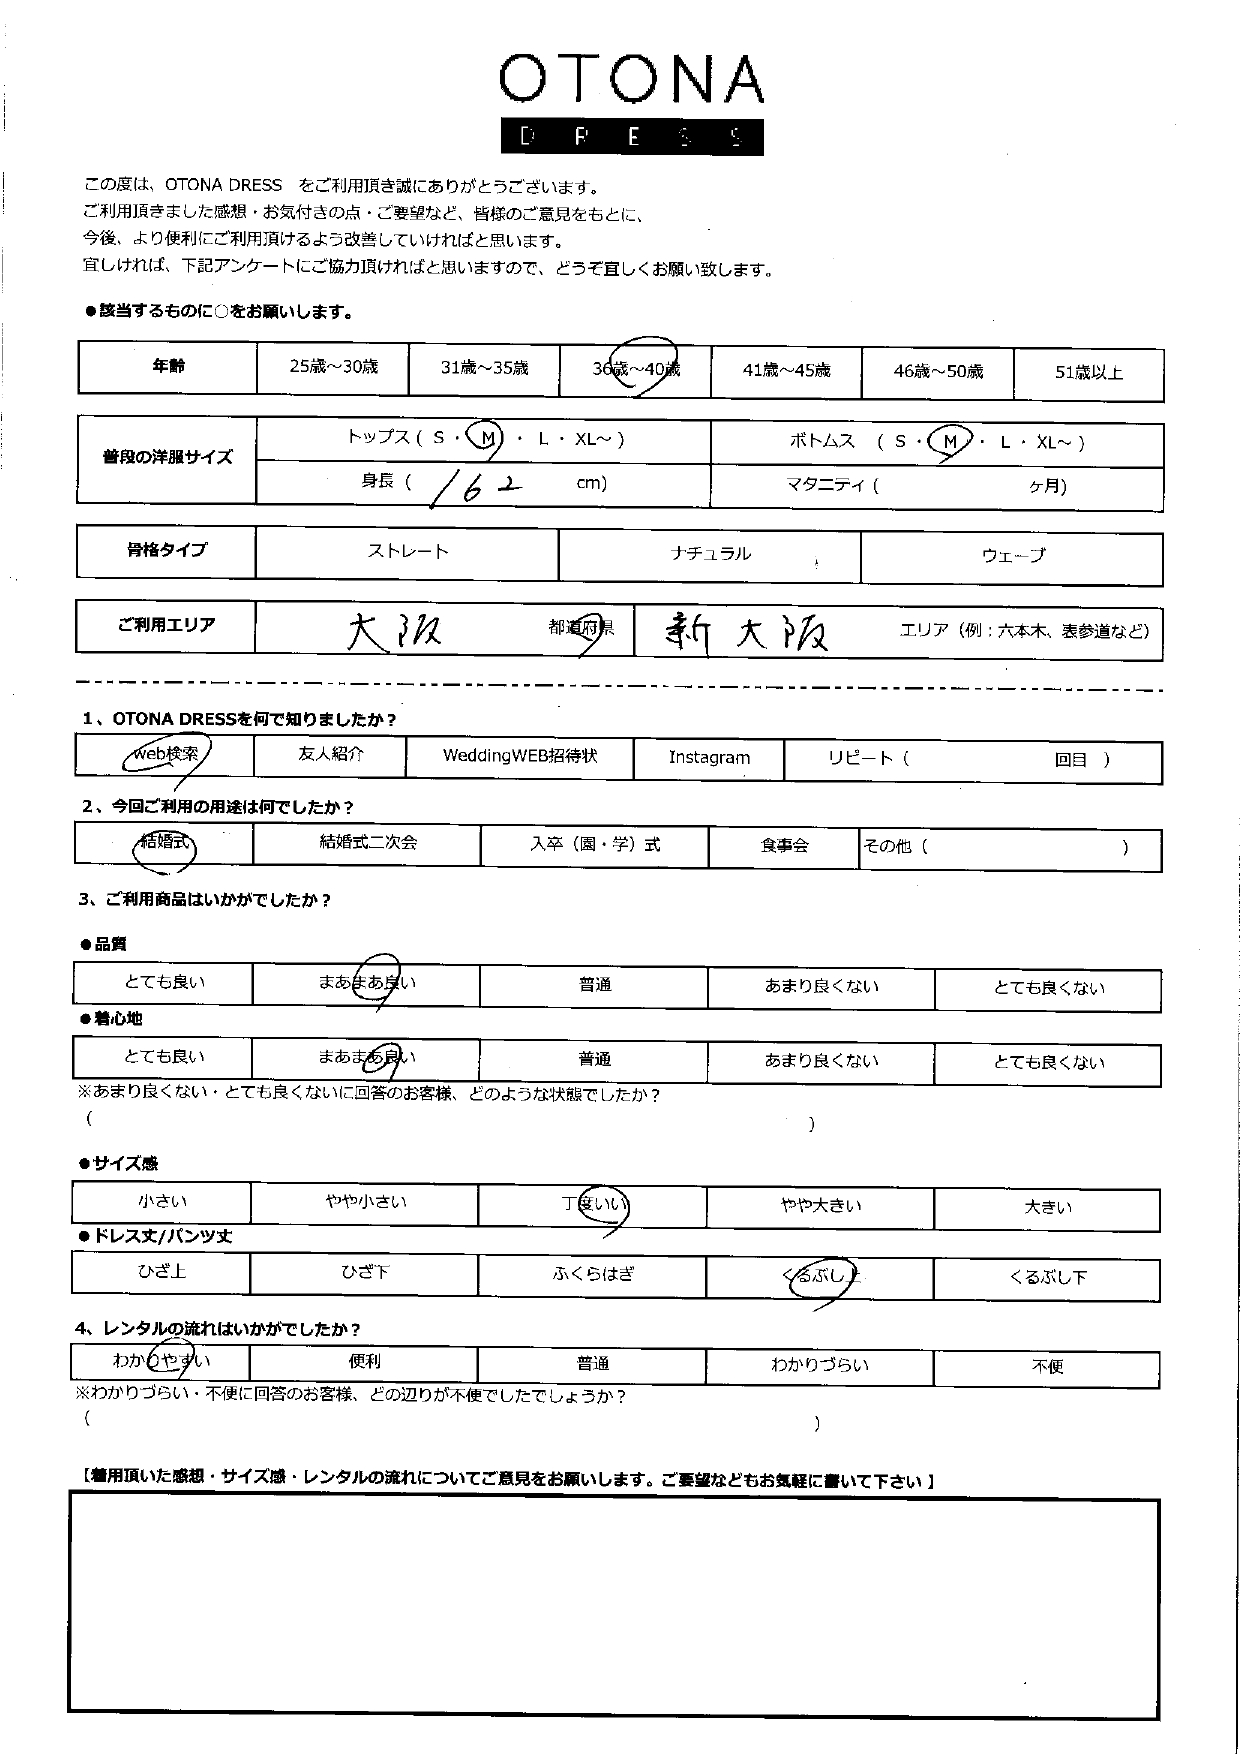 OTONA
DRESS
この度は、OTONA DRESS をご利用頂き誠にありがとうございます。
ご利用頂きました感想・お気付きの点・ご要望など、皆様のご意見をもとに、
今後、より便利にご利用頂けるよう改善していければと思います。
宜しければ、下記アンケートにご協力頂ければと思いますので、どうぞ宜しくお願い致します。
●該当するものに○をお願いします。
年齢 25歳～30歳 31歳～35歳 36歳～40歳 41歳～45歳 46歳～50歳 51歳以上
普段の洋服サイズ トップス ( S ・ M ・ L ・ XL～ ) ボトムス ( S ・ M ・ L ・ XL～ )
身長 ( 162 cm) マタニティ ( ヶ月)
骨格タイプ ストレート ナチュラル ウェーブ
ご利用エリア 大阪 都道府県 新大阪 エリア（例：六本木、表参道など）
1、OTONA DRESSを何で知りましたか？
web検索 友人紹介 WeddingWEB招待状 Instagram リピート ( 回目 )
2、今回ご利用の用途は何でしたか？
結婚式 結婚式二次会 入卒（園・学）式 食事会 その他 ( )
3、ご利用商品はいかがでしたか？
●品質
とても良い まあまあ良い 普通 あまり良くない とても良くない
●着心地
とても良い まあまあ良い 普通 あまり良くない とても良くない
※あまり良くない・とても良くないに回答のお客様、どのような状態でしたか？
( )
●サイズ感
小さい やや小さい 丁度いい やや大きい 大きい
●ドレス丈/パンツ丈
ひざ上 ひざ下 ふくらはぎ くるぶし上 くるぶし下
4、レンタルの流れはいかがでしたか？
わかりやすい 便利 普通 わかりづらい 不便
※わかりづらい・不便に回答のお客様、どの辺りが不便でしたでしょうか？
( )
【着用頂いた感想・サイズ感・レンタルの流れについてご意見をお願いします。ご要望などもお気軽に書いて下さい】